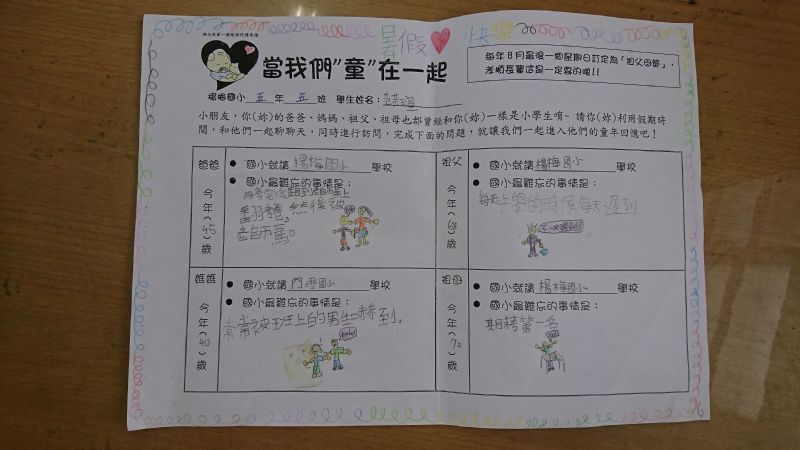 暑假 快樂
當我們"童"在一起
每年8月最後一個星期日訂定為「祖父母節」,
孝順長輩這是一定要的啦!!
楊梅國小 五 年 五 班 學生姓名:
小朋友,你(妳)的爸爸、媽媽、祖父、祖母也都曾經和你(妳)一樣是小學生唷~ 請你(妳)利用假期時
間,和他們一起聊聊天,同時進行訪問,完成下面的問題,就讓我們一起進入他們的童年回憶吧!
爸爸 今年(45)歲
● 國小就讀 楊梅國小 學校
● 國小最難忘的事情是:
然後被
老師罵。
祖父 今年(68)歲
● 國小就讀 楊梅國小 學校
● 國小最難忘的事情是:
每天上學的時候每天遲到
媽媽 今年(40)歲
● 國小就讀 國小 學校
● 國小最難忘的事情是:
常常被班上的男生嚇到。
祖母 今年(72)歲
● 國小就讀 楊梅國小 學校
● 國小最難忘的事情是:
期考第一名